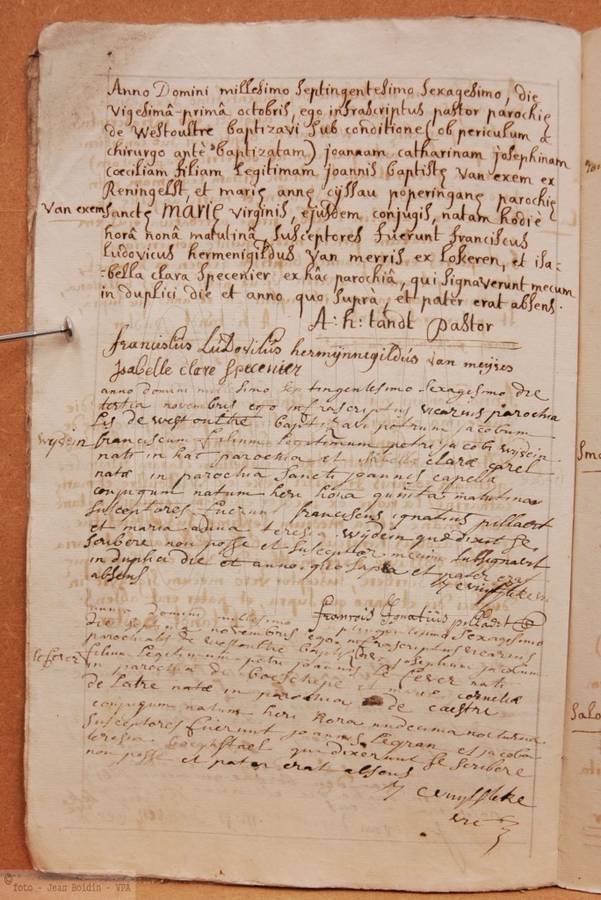 Anno Domini millesimo septingentesimo sexagesimo, die
vigesimâ-primâ octobris, ego infrascriptus pastor parochię
de Westoultre baptizavi sub conditione (ob periculum a
chirurgo antè baptizatam) joannam catharinam josephinam
cœciliam filiam legitimam joannis baptistę van exem ex
Reningelst, et marię annę cyssau poperinganę parochię
van exem
sanctę marię virginis, ejusdem conjugis, natam hodiè
horâ nonâ matulinâ, susceptores fuerunt franciscus
ludovicus hermenigildus van merris ex lokeren, et isa-
-bella clara specenier ex hâc parochiâ, qui signaverunt mecum
in duplici die et anno quo supra, et pater erat absens.
A:h:tandt pastor
franciscus Ludovicus hermijnnegildús van meijres
Isabelle clare specenier
anno domini sexagesimo die
tertia novembris ego infrascriptus vicarius parochia
lis de westoultre baptizavi petrum jacobum
wijdein
franciscum filium legitimum petri jacobi wijdein
nati in hac parochia et claræ carel
natæ in parochia sancti joannis capella
conjugum natum heri hora quinta matutina
susceptores fuerunt franciscus ignatius pillaert
et maria teresia wijdein quæ dixit se
scribere non posse et susceptor mecum subsignavit
in duplici die et anno quo supra et pater erat
absens
francois Ignatius pillaert
anno domini millesimo septingentesimo sexagesimo
die novembris ego infrascriptus vicarius
parochialis de westoultre baptizavi josephum jacobum
le fever
filium legitimum petri joannis le fever nati
in parochia de et mariæ corneliæ
de latre natæ in parochia de caestre
conjugum natum heri hora undecima nocturna
susceptores fuerunt joannes legran et jacoba
teresia qui dixerunt se scribere
non posse et pater erat absens
© foto - Jean Boidin - VPA